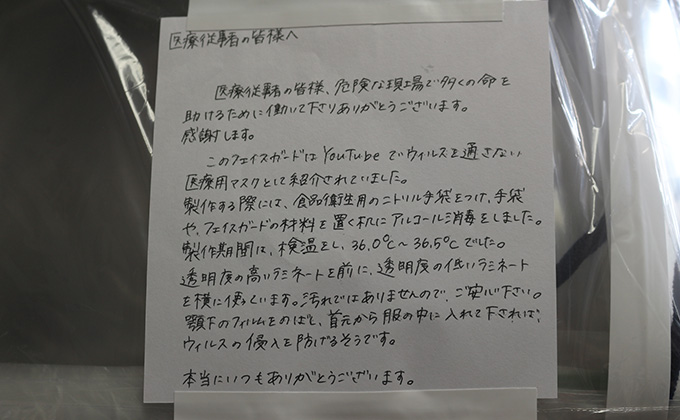 医療従事者の皆様へ
医療従事者の皆様、危険な現場で多くの命を
助けるために働いて下さりありがとうございます。
感謝します。
このフェイスガードはYouTubeでウィルスを通さない
医療用マスクとして紹介されていました。
製作する際には、食品衛生用のニトリル手袋をつけ、手袋
や、フェイスガードの材料を置く机にアルコール消毒をしました。
製作期間は、検温をし、36.0℃〜36.5℃でした。
透明度の高いラミネートを前に、透明度の低いラミネート
を横に使っています。汚れではありませんので、ご安心下さい。
顎下のフィルムをのばし、首元から服の中に入れて下されば、
ウィルスの侵入を防げるそうです。
本当にいつもありがとうございます。